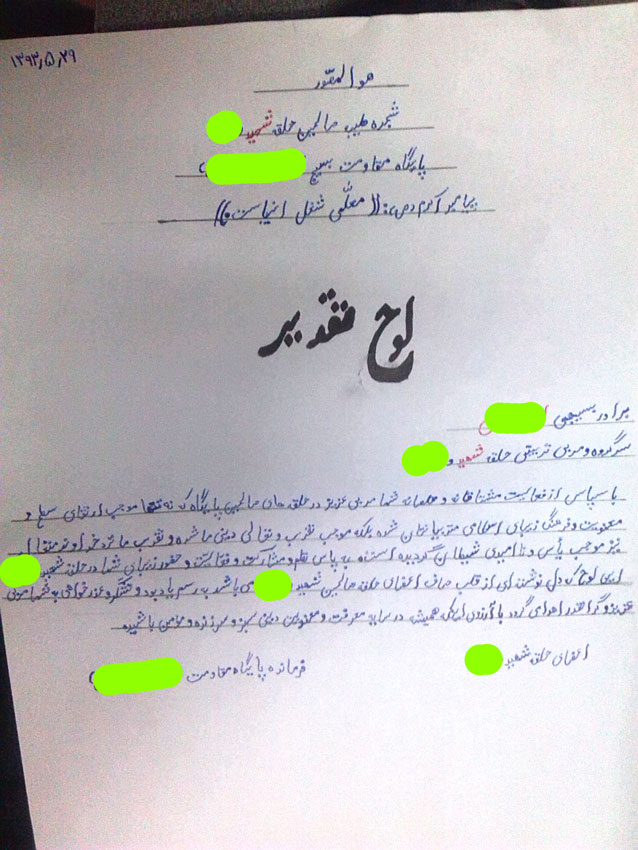 ۱۳۹۳٫۵٫۲۹
هو المصور
شجره طیبه صالحین حلقه شهید
پایگاه مقاومت بسیج
پیامبر اکرم (ص): ((معلمی شغل انبیاست))
لوح تقدیر
برادر بسیجی
سرگروه و مربی تربیتی حلقه شهید
با سپاس از فعالیت مشتاقانه و شما مربی عزیز در حلقه های صالحین پایگاه که نه تنها موجب ارتقای سطح
معنویت و فرهنگ زیبای اسلامی متربیانتان شده بلکه موجب تقرب و تعالی دینی ما شده و تقرب ما نزد خدا
نیز موجب یأس و ناامیدی شیطان گردیده است، به پاس نظم و مشارکت و فعالیت و حضور زیبای شما در حلقه شهید
این لوح که دل نوشته ای از قلب صاف اعضای حلقه صالحین شهید می باشد به رسم یادبود و تشکر و عذرخواهی به شما مربی
عزیز و گرانقدر اهدای گردد با آرزوی اینکه همیشه در سایه معرفت و معنویت دینی سبز و سرزنده و مؤمن باشید
اعضای حلقه شهید
فرمانده پایگاه مقاومت